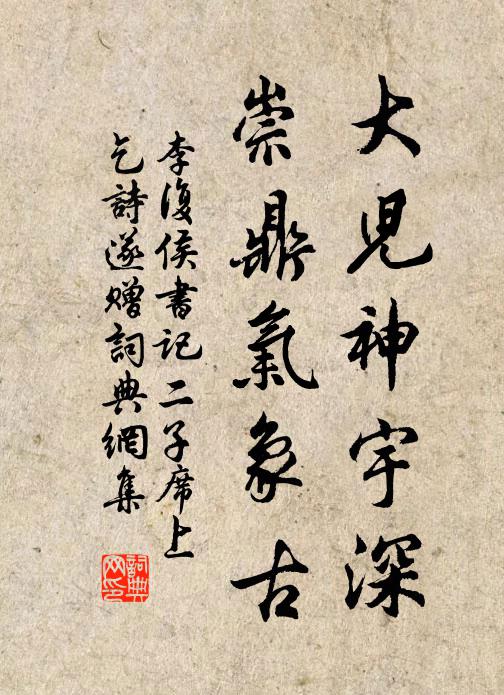 大児神宇深
崇鼎氣象古
李復侯書記二子席上
乞詩遂贈詞典網集
詞典
网印